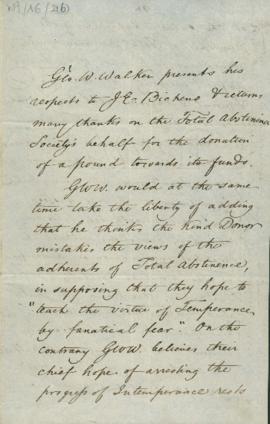 Geo. W. Walker presents his
respects to J.E. Bicheno & returns
many thanks on the Total Abstinence
Society's behalf for the donation
of a pound towards its funds.
GWW. would at the same
time take the liberty of adding
that he thinks the kind Donor
mistakes the views of the
adherents of Total Abstinence,
in supposing that they hope to
"teach the virtue of Temperance
by fanatical fear". On the
contrary GWW. believes their
chief hope of arresting the
progress of Intemperance rests